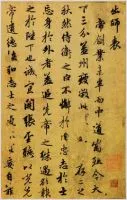 出師表
先帝創業未半而中道崩殂今天
下三分益州疲敝此危急存亡之
秋也然侍衛之臣不懈於內忠志之士
忘身於外者蓋追先帝之殊遇欲報
之於陛下也誠宜開張聖聽以光先
帝遺德恢志士之氣不宜妄自